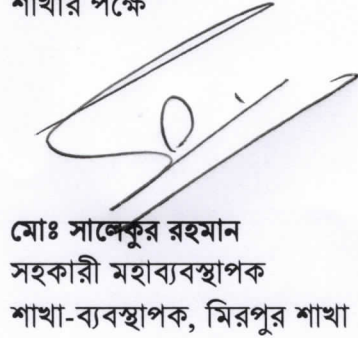 শাখার পক্ষে
মোঃ সালেকুর রহমান
সহকারী মহাব্যবস্থাপক
শাখা-ব্যবস্থাপক, মিরপুর শাখা